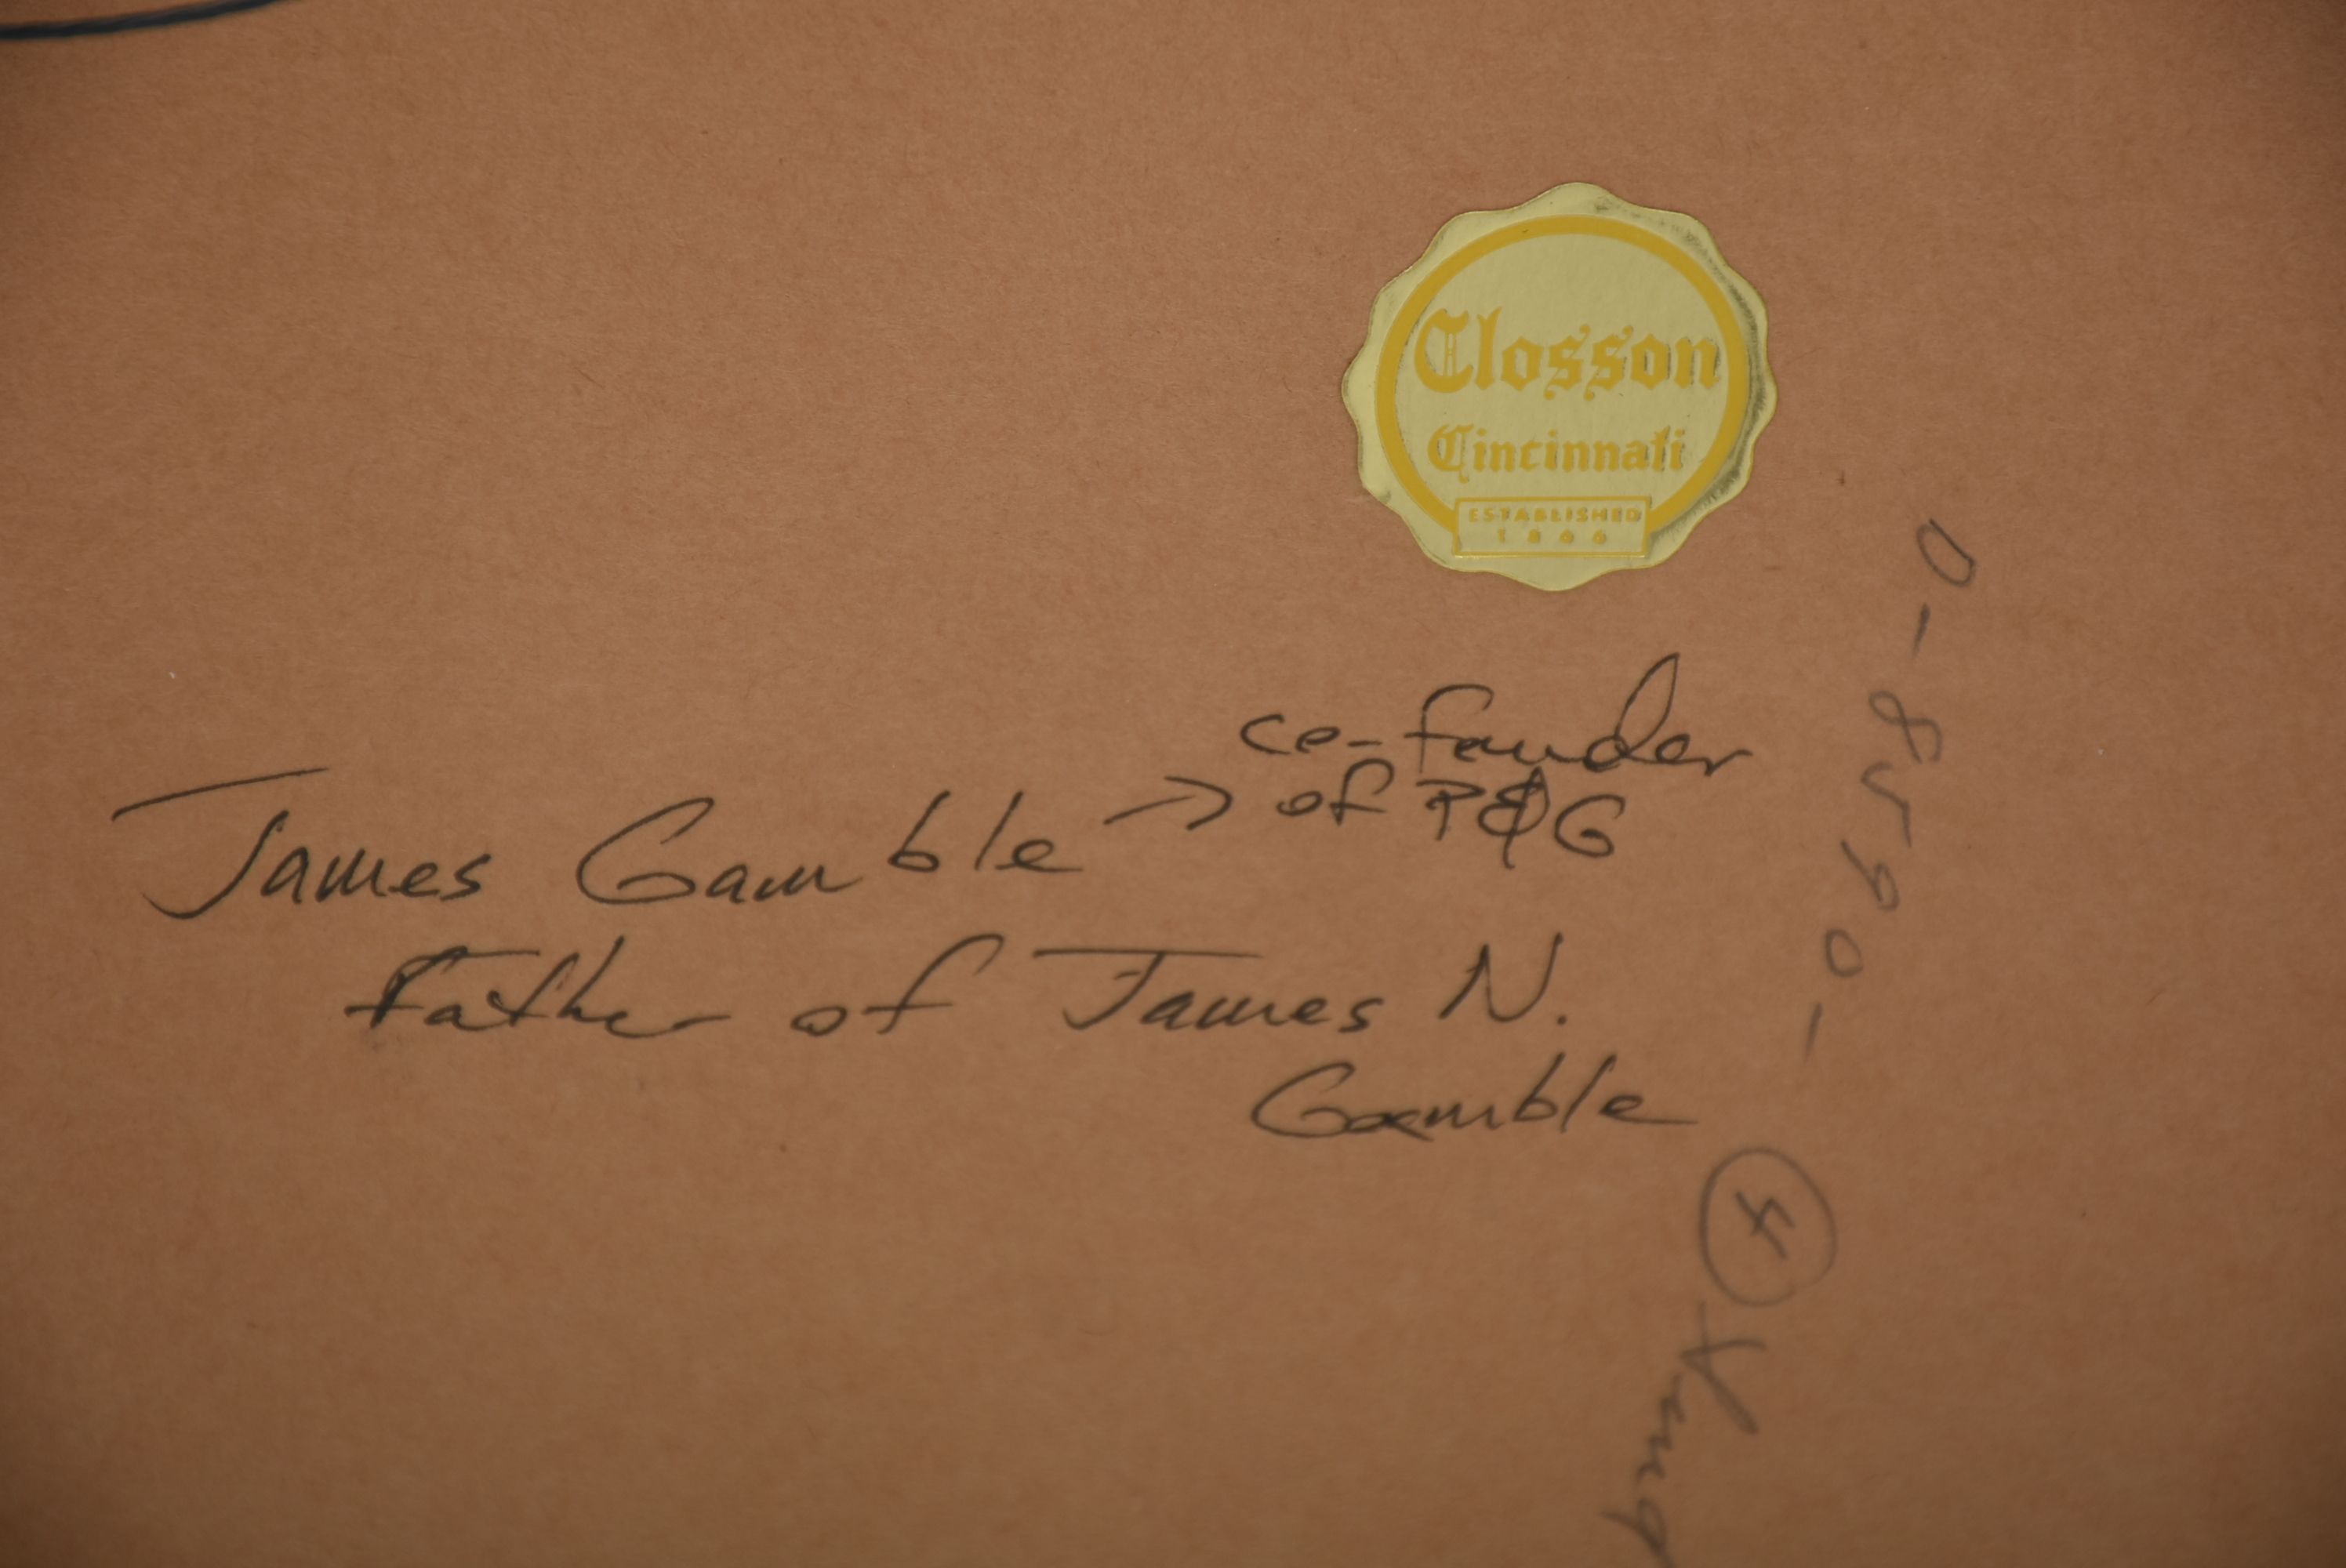 Closson
Cincinnati
ESTABLISHED
1866
co-founder
James Gamble → of P&G
Father of James N.
Gamble
0-8590-
4